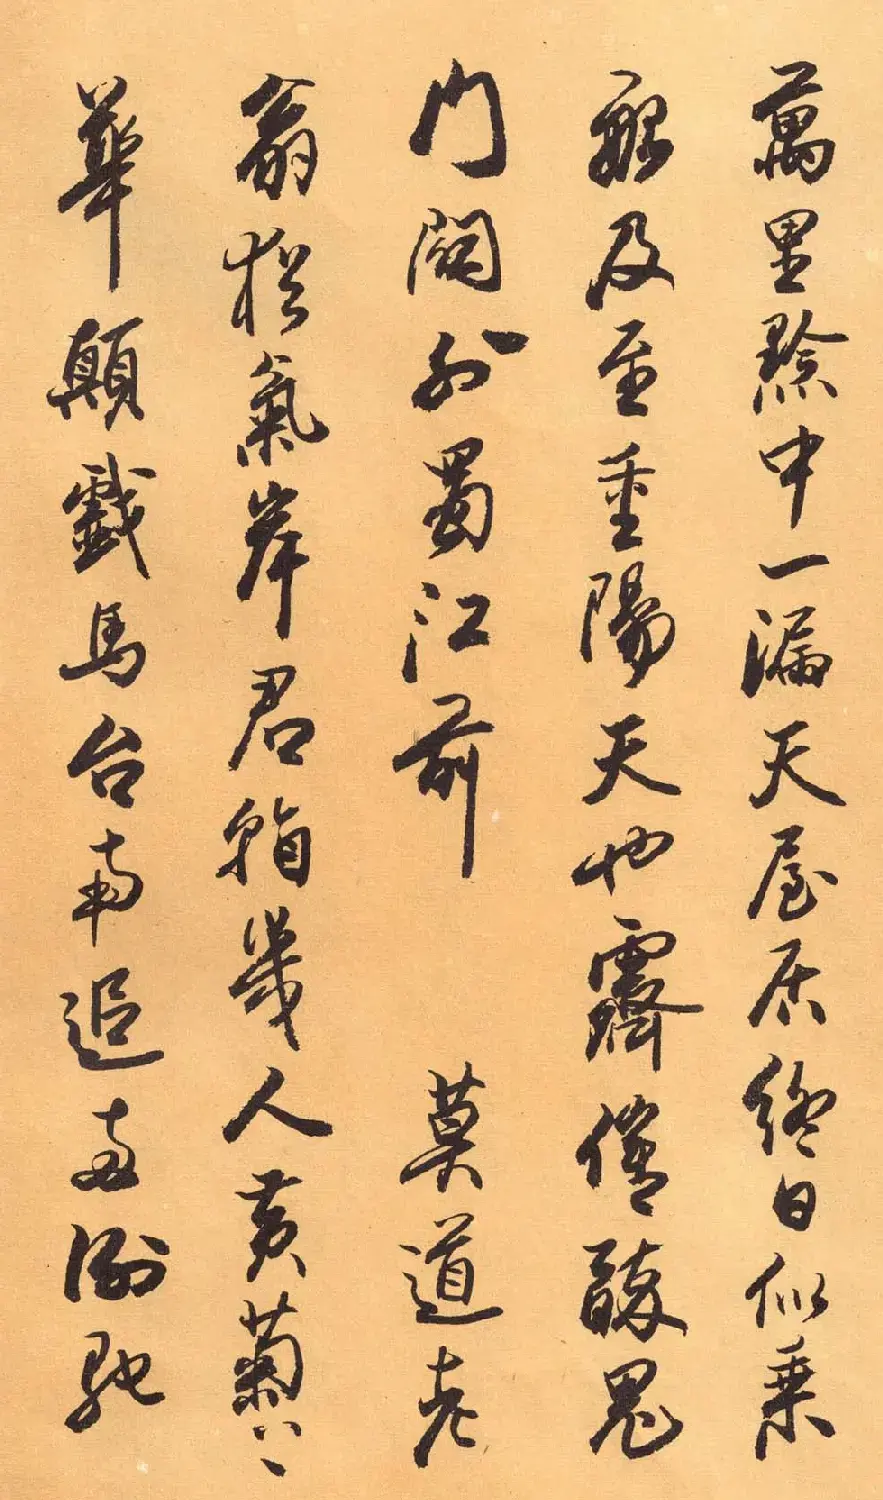 萬里黔中一漏天屋居終日似乘
船及至重陽天也霽催醉鬼
門關外蜀江前 莫道老
翁猶氣岸君看幾人黃菊上
華顛戲馬台南追兩謝馳